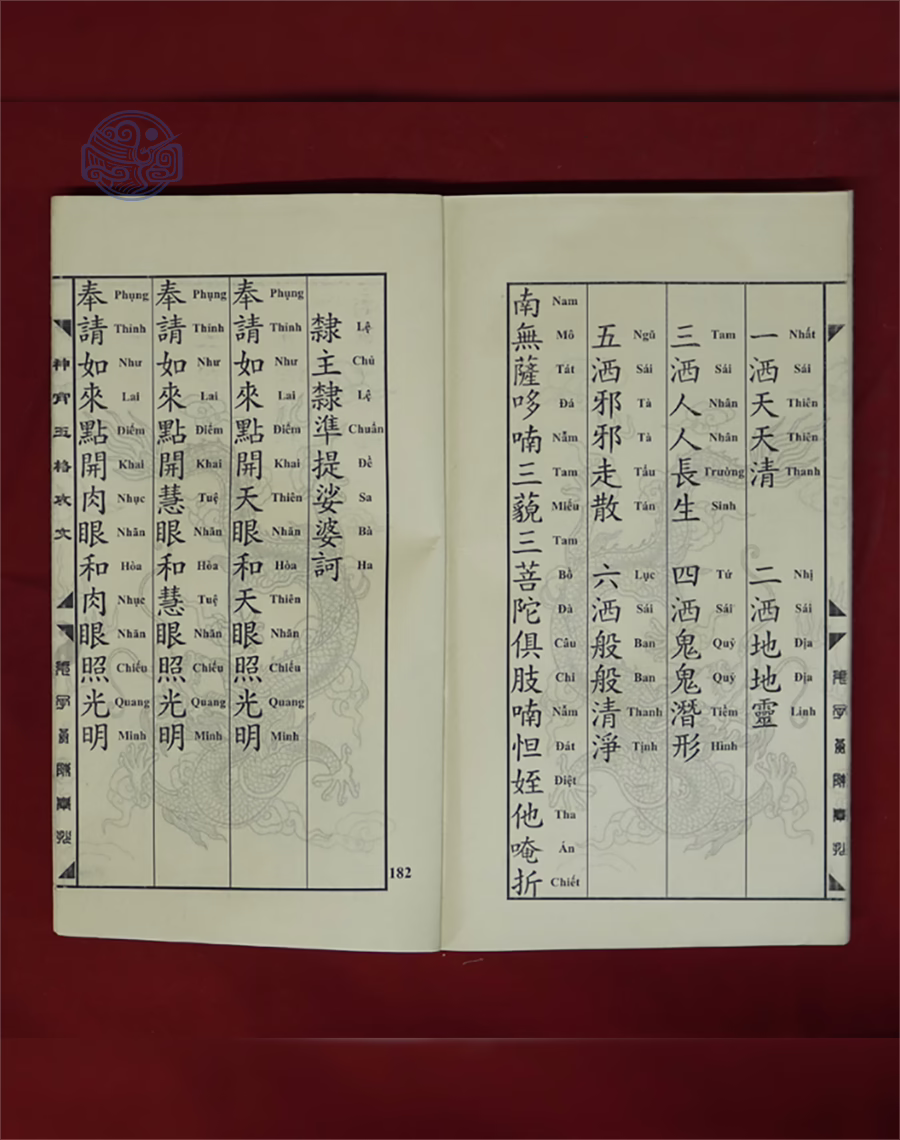 一洒天天清 二洒地地靈
Nhất Sái Thiên Thiên Thanh Nhị Sái Địa Địa Linh
三洒人人長生 四洒鬼鬼潛形
Tam Sái Nhân Nhân Trường Sinh Tứ Sái Quỷ Quỷ Tiềm Hình
五洒邪邪走散 六洒般般清淨
Ngũ Sái Tà Tà Tẩu Tán Lục Sái Ban Ban Thanh Tịnh
南無薩哆喃三藐三菩陀俱肢喃怛姪他唵折
Nam Mô Tát Đá Nẫm Tam Miểu Tam Bồ Đà Câu Chi Nẫm Đát Điệt Tha Án Chiết
隸主隸準提娑婆訶
Lệ Chủ Lệ Chuẩn Đề Sa Bà Ha
奉請如來點開天眼和天眼照光明
Phụng Thỉnh Như Lai Điểm Khai Thiên Nhãn Hòa Thiên Nhãn Chiếu Quang Minh
奉請如來點開慧眼和慧眼照光明
Phụng Thỉnh Như Lai Điểm Khai Tuệ Nhãn Hòa Tuệ Nhãn Chiếu Quang Minh
奉請如來點開肉眼和肉眼照光明
Phụng Thỉnh Như Lai Điểm Khai Nhục Nhãn Hòa Nhục Nhãn Chiếu Quang Minh
神霄玉格攻文
182